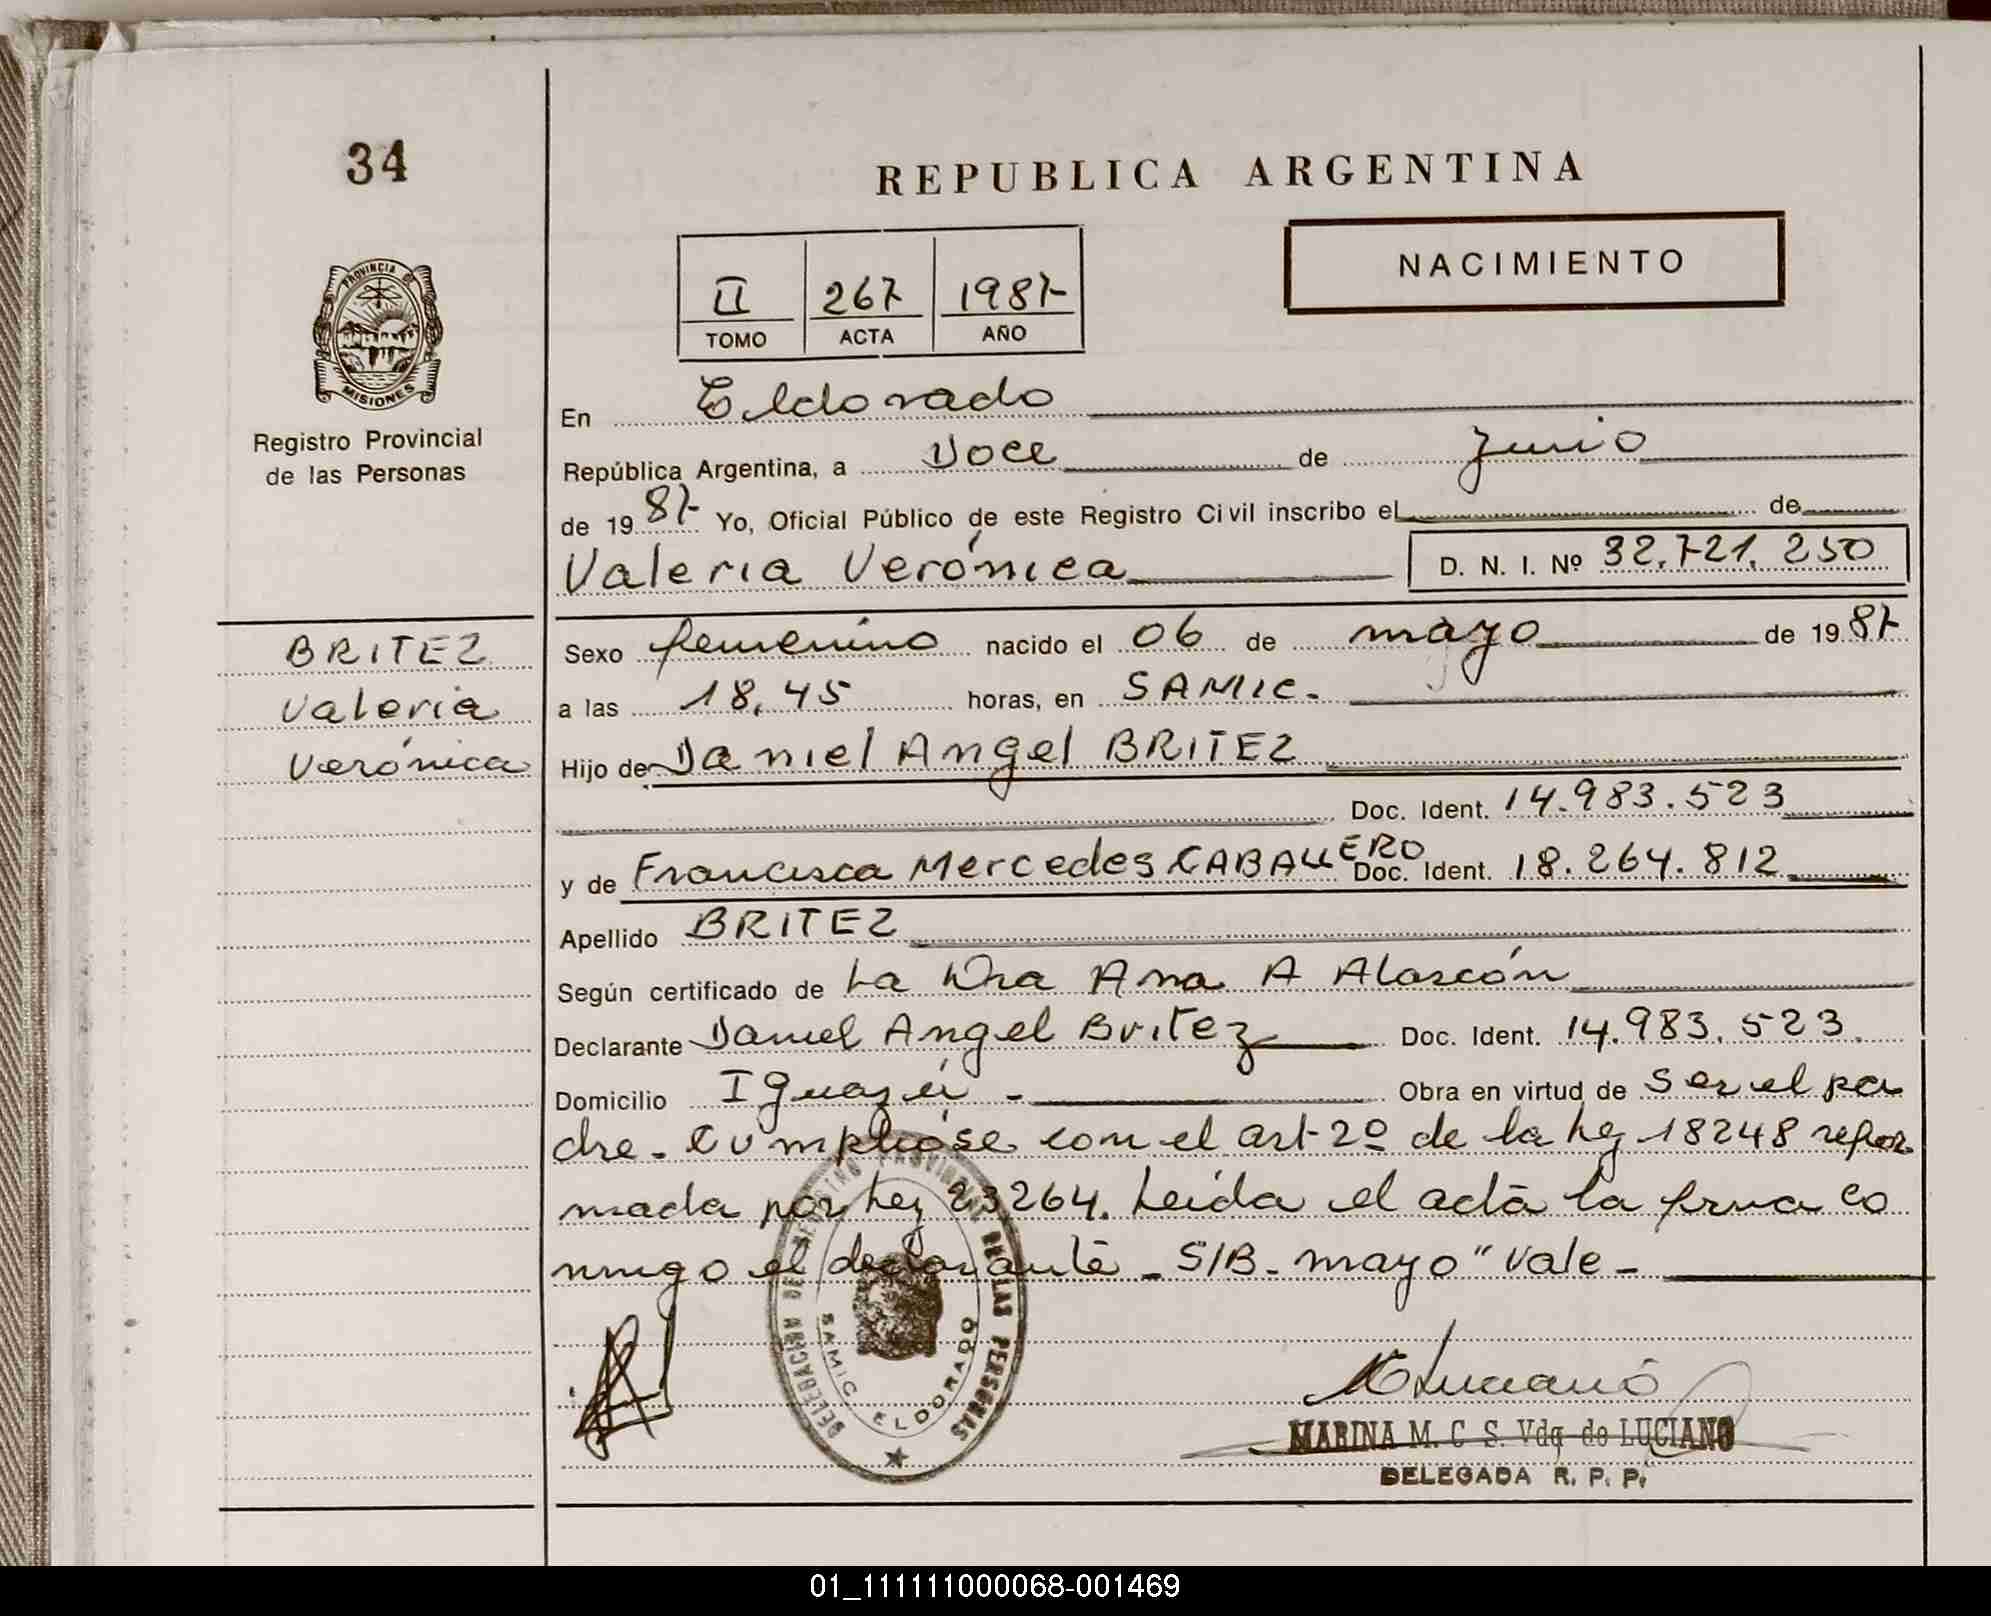 34
REPUBLICA ARGENTINA
NACIMIENTO
II 267 1987
TOMO ACTA AÑO
PROVINCIA DE
MISIONES
Registro Provincial
de las Personas
BRITEZ
Valeria
Verónica
En Eldorado
República Argentina, a Doce de Junio
de 1987 Yo, Oficial Público de este Registro Civil inscribo el de
Valeria Verónica D. N. I. Nº 32.721.250
Sexo femenino nacido el 06 de mayo de 1987
a las 18,45 horas, en SAMIC.
Hijo de Daniel Angel BRITEZ
Doc. Ident. 14.983.523
y de Francisca Mercedes CABALLERO Doc. Ident. 18.264.812
Apellido BRITEZ
Según certificado de La Dra Ana A Alarcón
Declarante Daniel Angel Britez Doc. Ident. 14.983.523.
Domicilio Iguazú - Obra en virtud de Ser el pa
dre. Cumplióse con el art 2º de la Ley 18248 refor
mada por Ley 23264. Leída el acta la firma co
nmigo el declarante - S/B. mayo" Vale -
DELEGACION DEL REGISTRO PROVINCIAL DE LAS PERSONAS
SAMIC ELDORADO
MARINA M. C. S. Vda de LUCIANO
DELEGADA R. P. P.
01_111111000068-001469